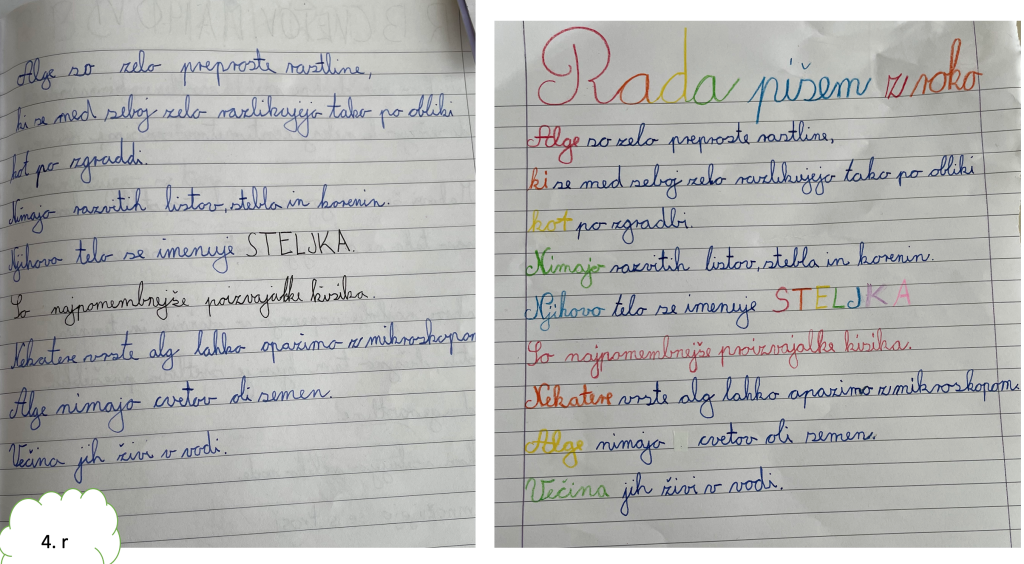 Alge so zelo preproste rastline,
ki se med seboj zelo razlikujejo tako po obliki
kot po zgraddi.
Nimajo razvitih listov, stebla in korenin.
Njihovo telo se imenuje STELJKA.
So najpomembnejše poizvajalke kisika.
Nekatere vrste alg lahko opazimo z mikroskopom
Alge nimajo cvetov ali semen.
Večina jih živi v vodi.
4. r
Rada pišem z roko
Alge so zelo preproste rastline,
ki se med seboj zelo razlikujejo tako po obliki
kot po zgradbi.
Nimajo razvitih listov, stebla in korenin.
Njihovo telo se imenuje STELJKA
So najpomembnejše proizvajalke kisika.
Nekatere vrste alg lahko opazimo z mikroskopom.
Alge nimajo cvetov ali semen.
Večina jih živi v vodi.